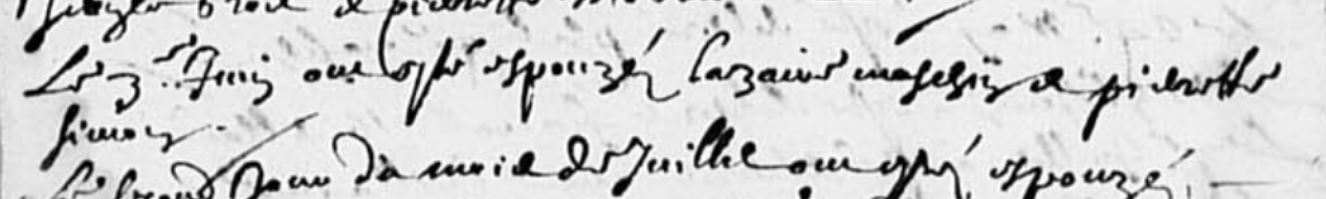 & pierrette
Le 3e Juin ont esté espouzés Lazaire & pierrette
simon
Le segond Jour du mois de Juillet ont estés espouzés